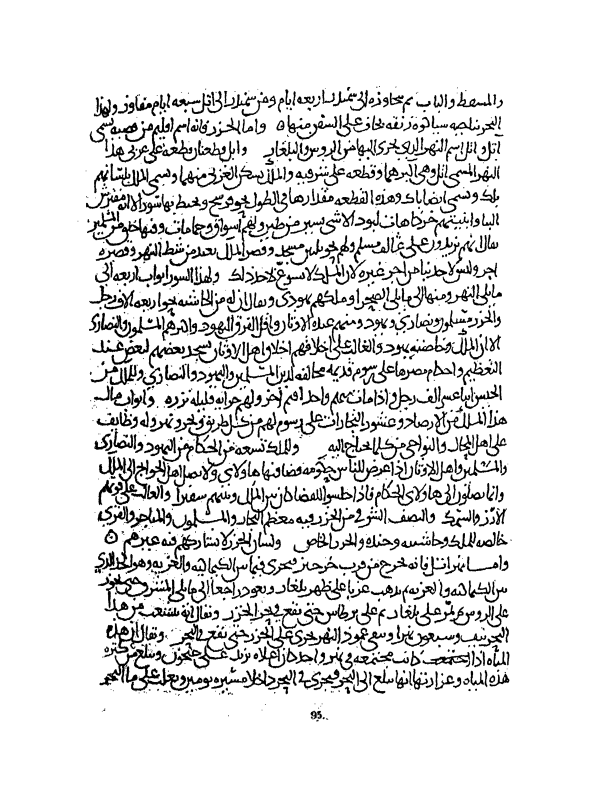 والمسقط والباب ثم يجاوزه الى سمندر اربعه ايام ومن سمندر الى اتل سبعه ايام مفاوز ولهذا
البحر بناحيه سياه كوه زنقه يخاف على السفن منها ٥ واما الخزر فانه اسم اقليم من قصبه تسمى
اتل واتل اسم النهر الذي يجرى اليها من الروس والبلغار واتل قطعتان قطعه على غربى هذا
النهر المسمى اتل وهى اكبرهما وقطعه على شرقيه والملك يسكن الغربى منهما ويسمى الملك بلسانهم
بك ويسمى ايضا باك وهذه القطعه مقدارها فى الطول نحو فرسخ ويحيط بها سور الا انه مفترش
البنا وابنيتهم خركاهات لبود الا شى يسير من طين ولهم اسواق وحمامات وفيها خلق من المسلمين
يقال انهم يزيدون على عشره الف مسلم ولهم نحو ثلثين مسجد وقصر الملك بعيد من شط النهر وقصره
اجر وليس لاحد بنا من اجر غيره لان الملك لا يسوغ لاحد ذلك ولهذا السور ابواب اربعه الى
ما يلى النهر ومنها الى ما يلى الصحرا وملكهم يهودى ويقال ان له من الحاشيه نحو اربعه الاف رجل
والخزر مسلمون ونصارى ويهود ومنهم عبده الاوثان واقل الفرق اليهود واكثرهم المسلمون والنصارى
الا ان الملك وخاصته يهود والغالب على اخلاقهم اخلاق اهل الاوثان يسجد بعضهم لبعض عند
التعظيم واحكام مصرها على رسوم قديمه مخالفه لدين المسلمين واليهود والنصارى وللملك من
الجيش اثنا عشر الف رجل واذا مات منهم واحد اقيم اخر ولهم جرايه قليله نزره وابواب مال
هذا الملك من الارصاد وعشور التجارات على رسوم لهم من كل طريق وبحر ونهر وله وظايف
على اهل المحال والنواحى من كل ما يحتاج اليه وللملك تسعه من الحكام من اليهود والنصارى
والمسلمين واهل الاوثان اذا عرض للناس حكومه قضا فيها هاولاى ولا يصل اهل الحوايج الى الملك
وانما يصلون الى هاولاى الحكام فاذا جلسوا للقضا كان بين الملك وبينهم سفيرا والغالب على قوتهم
الارز والسمك والنصف الشرقى من الخزر فيه معظم التجار والمسلمون والمتاجر والغربى
خالصه للملك وحاشيته وجنده والخزر الخالص ولسان الخزر لا يشاركهم فيه غيرهم ٥
واما نهر اتل فانه يخرج من قرب خرخيز فيجرى فيما بين الكيماكيه والغزيه وهو الحد الذى
بين الكيماكيه والغزيه ثم يذهب غربا على ظهر بلغار ويعود راجعا الى ما يلى المشرق حتى يجوز
على الروس ثم يمر على بلغار ثم على برطاس حتى يقع فى بحر الخزر ويقال انه يتشعب من هذا
البحر نيف وسبعين نهرا ويبقى عمود النهر يجرى على الخزر حتى يقع فى البحر ويقال ان هذه
المياه اذا كانت مجتمعه فى نهر واحد كان اعلاه يزيد على جيحون ويبلغ من كثره
هذه المياه وغزارتها انها تبلغ الى البحر فيجرى فى البحر داخلا مسيره يومين ويغلب على ما البحر
95.